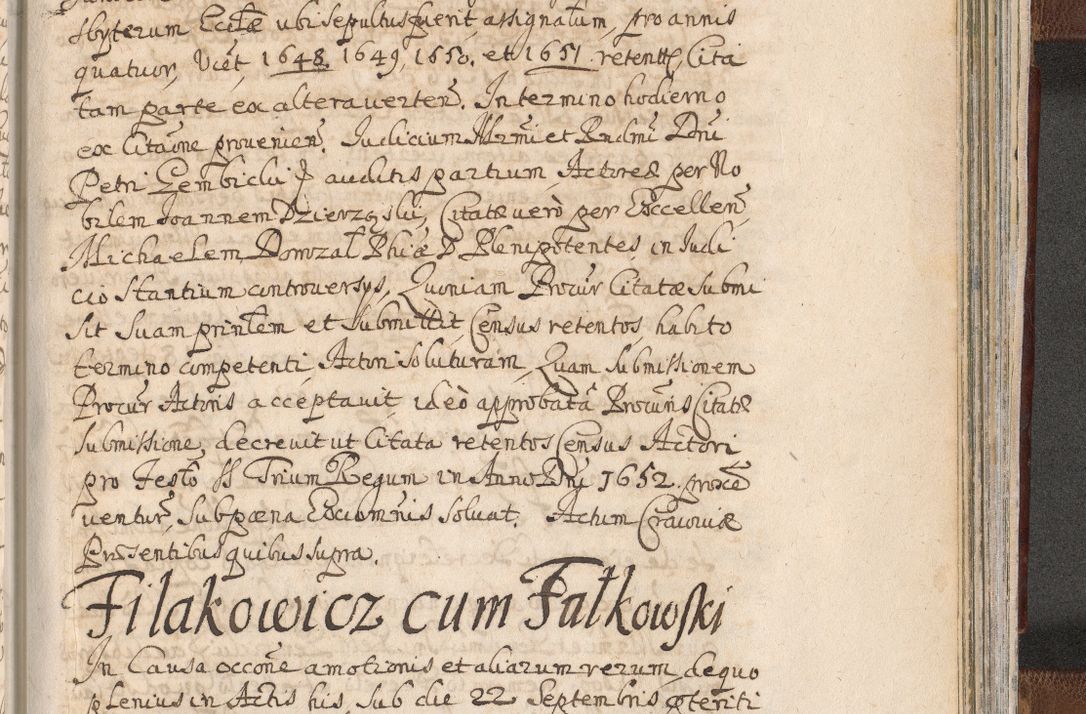 sbyterum Eccłæ ubi sepultus fuerit assignatum, pro annis
quatuor, Viēt, 1648. 1649, 1650. et 1651. retentt, Cita
tam parte ex altera verteñ. In termino hodierno
ex Citaōne provenieñ. Iudicium Illrmi et Rndmi Dni
Petri Gembicki P auditis partium, Actoreæ per No
bilem Joannem Dzierzęski, Citatæ verò per Excelleñ
Michaelem Dowzał Phiæ D. Plenipotentes, in Judi
cio stantium controversys, Quoniam Procur Citatæ submi
sit suam prinlem et submittit, Census retentos, habito
termino competenti, Actori soluturam, Quam submissionem
Procur Actoris acceptavit, ideò approbata Procuris Citatæ
submissione, decrevit ut Citata retentos Census Actori
pro Festo SS Trium Regum in Anno Dni 1652. proxe
ventur, sub pœna Excomnis solvat. Actum Cracoviæ
Præsentibus quibus supra.
Filakowicz cum Fałkowski
In Causa occōne amotionis et aliarum rerum, de quo
plenius in Actis his, sub die 22 Septembris præteriti